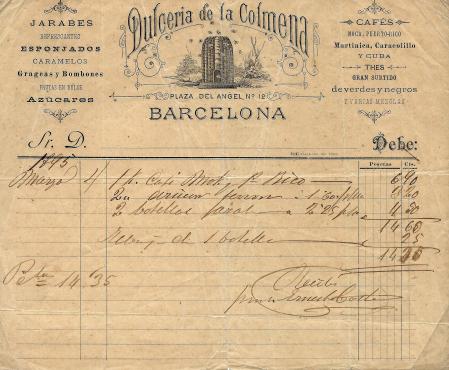 Dulcería de la Colmena
PLAZA DEL ANGEL Nº 12
BARCELONA
JARABES
REFRESCANTES
ESPONJADOS
CARAMELOS
Grageas y Bombones
FRUTAS EN DULCE
Azúcares
CAFÉS
MOCA, PUERTO-RICO
Martinica, Caracolillo
Y CUBA
THES
GRAN SURTIDO
de verdes y negros
Y VARIAS MEZCLAS
Sr. D. Debe:
Pesetas Cts.
1895
Marzo 4 Café Mok, P. Rico 6 90
2 a 1'60
2 botellas a 2'25 4 50
14 60
de 1 botella 25
14 35
14'35
Recibí